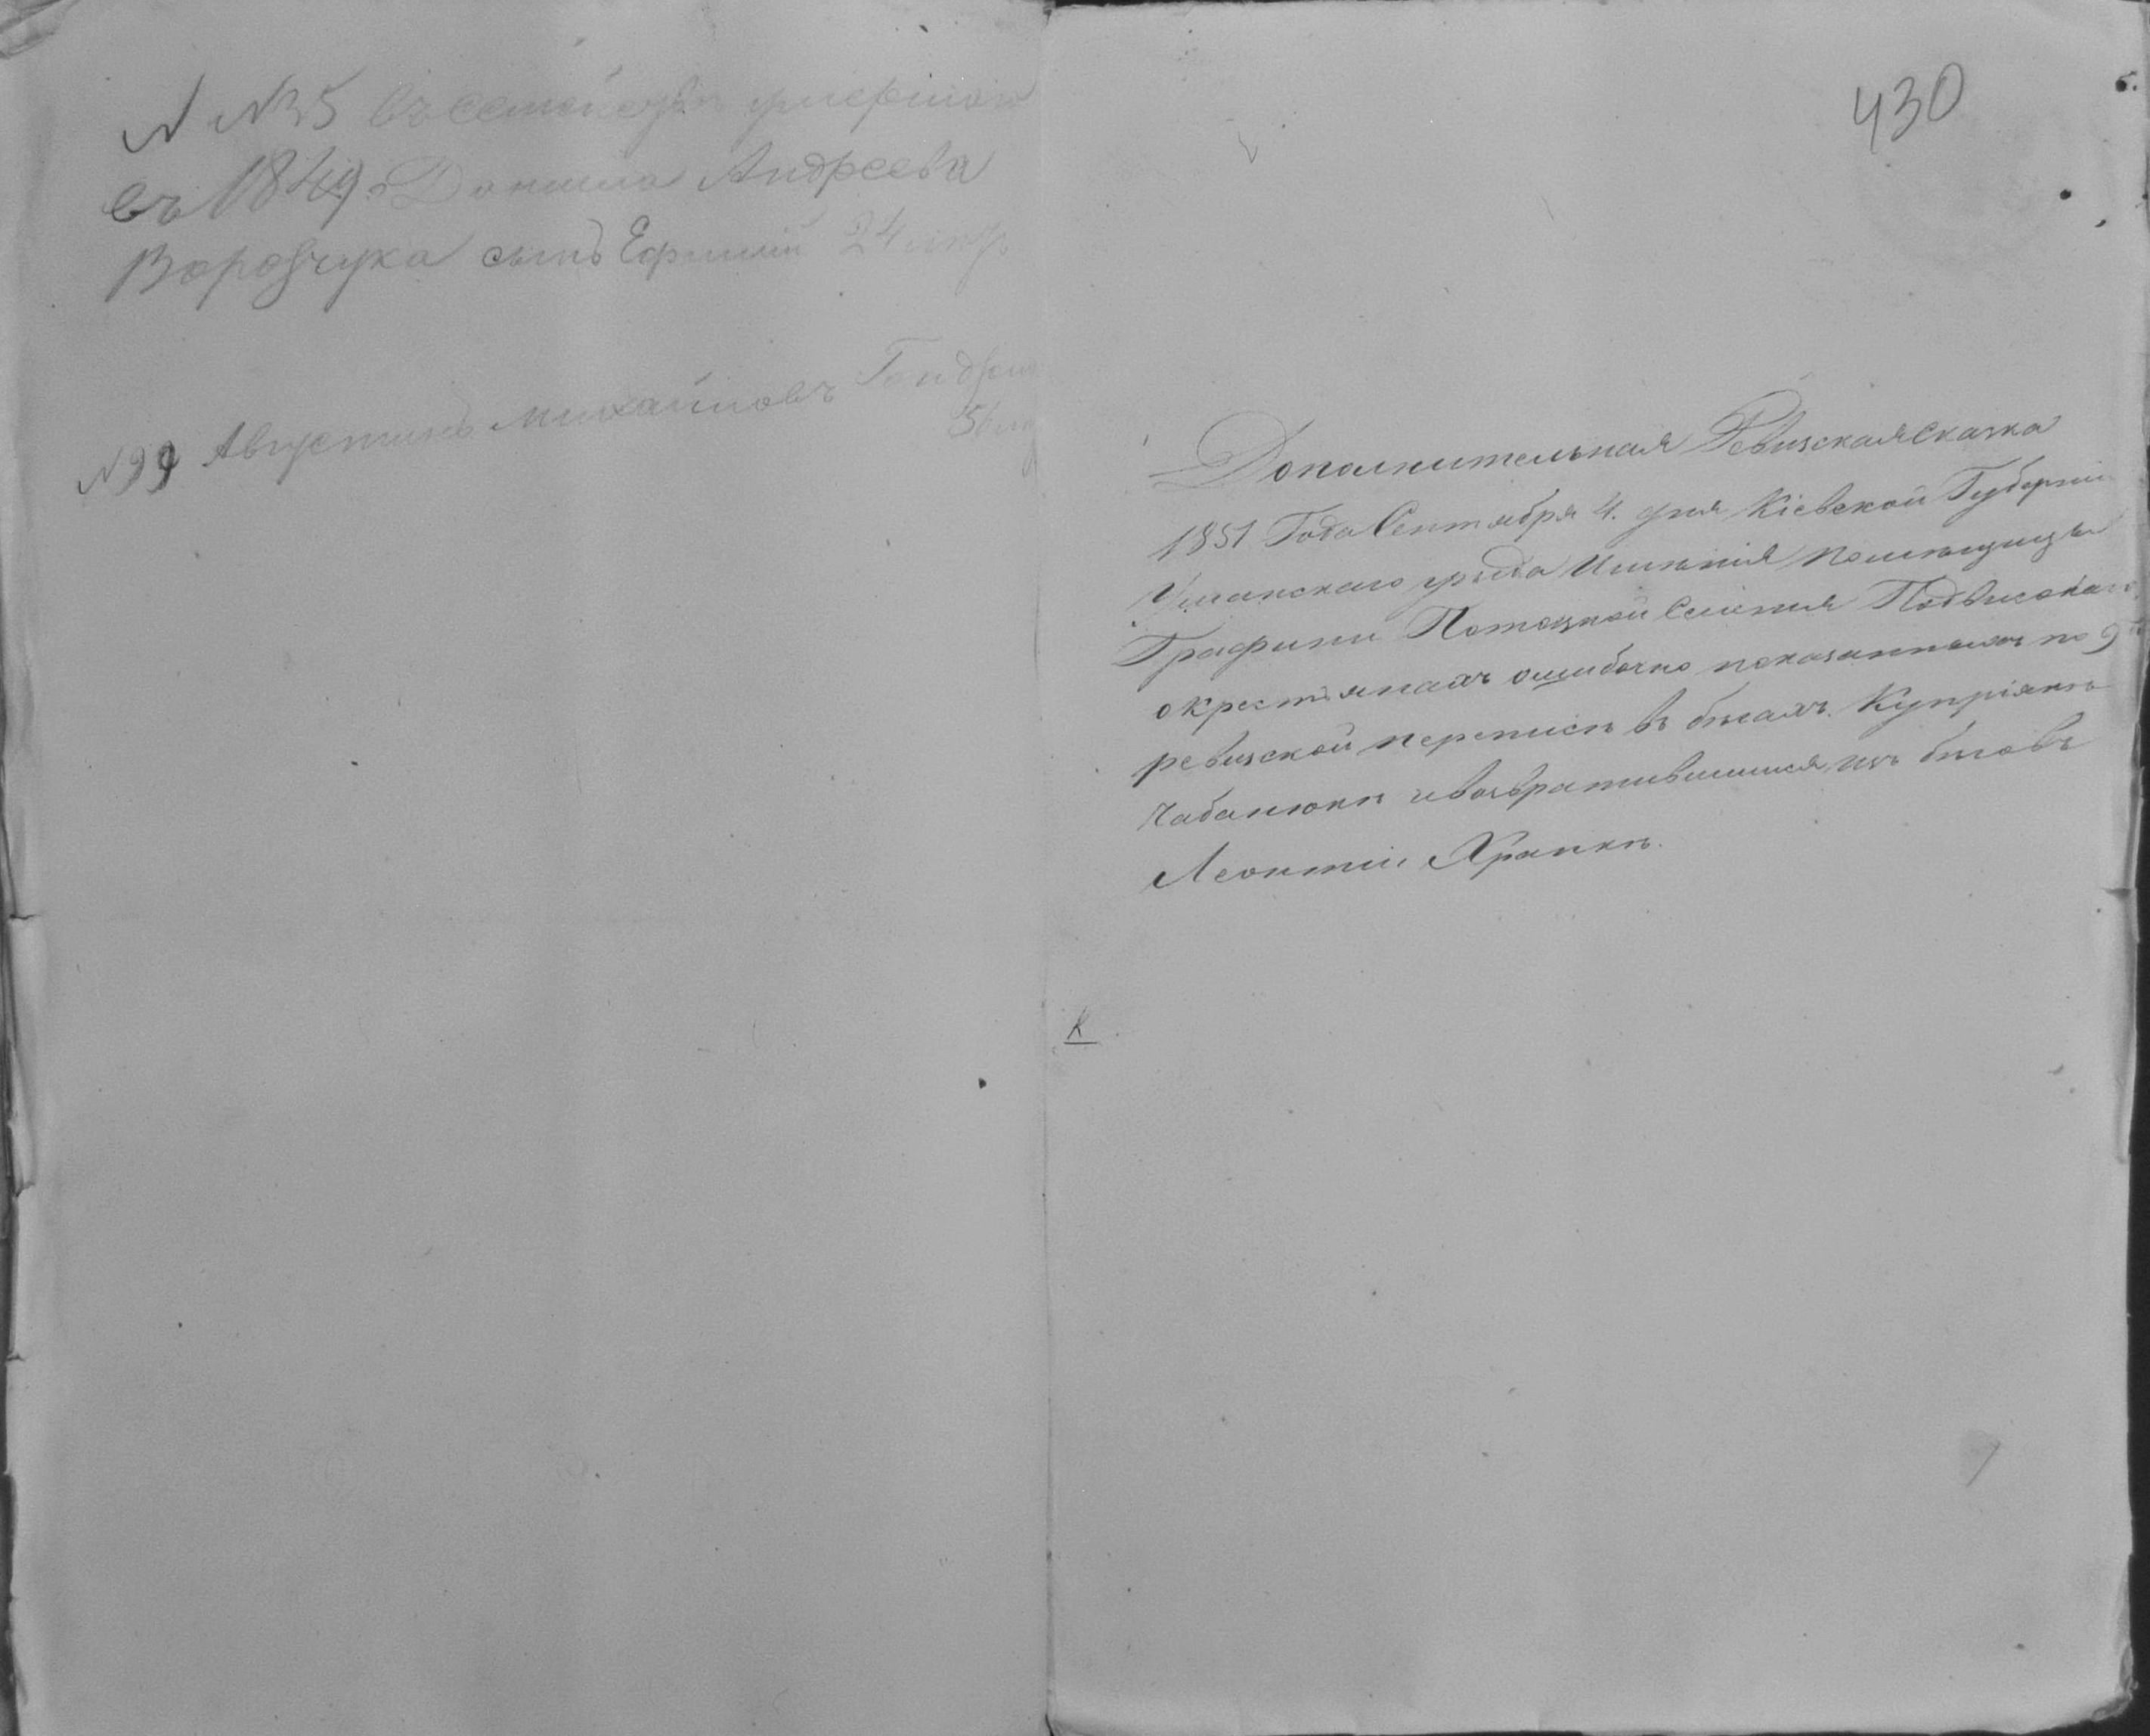 N N35 въ семействѣ умершаго
въ 1849 Данила Андреева
Воровчука сынъ Ефимий 24
N99 Августинъ Михайловъ
430
Дополнительная Ревизская Сказка
1851 Года Сентября 4. дня Кіевской Губерніи
Уманскаго уѣзда Имѣнія Помѣщицы
Графини Потоцкой Селенія Подвисокаго
о крестьянахъ ошибочно показанныхъ по 9й
ревизской переписи въ бѣгахъ Купріянѣ
Чабанюкѣ и возвратившимся изъ бѣговъ
Леонтіи Храпкѣ.
К